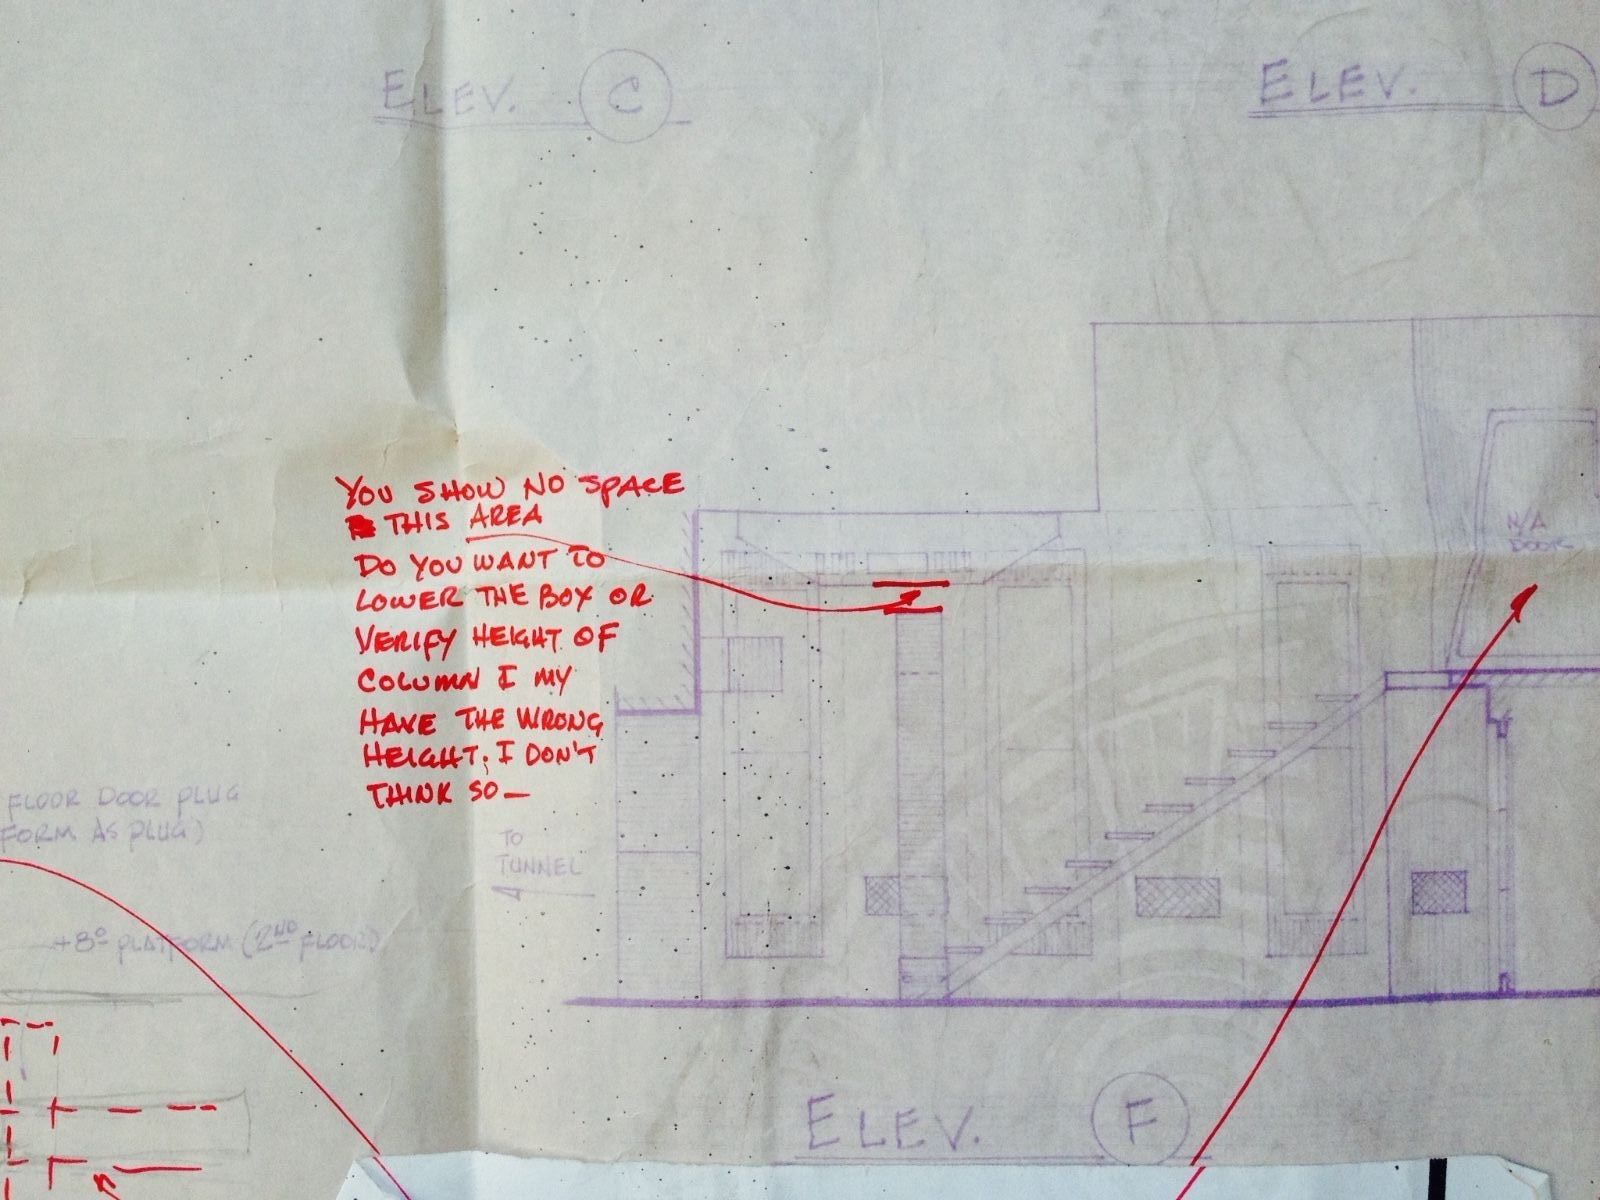 ELEV. C
ELEV. D
YOU SHOW NO SPACE
THIS AREA
DO YOU WANT TO
LOWER THE BOX OR
VERIFY HEIGHT OF
COLUMN I MY
HAVE THE WRONG
HEIGHT. I DON'T
THINK SO
N/A
DOOR
FLOOR DOOR PLUG
FORM AS PLUG)
TO
TUNNEL
+8⁰ PLATFORM (2ND FLOOR)
ELEV. F